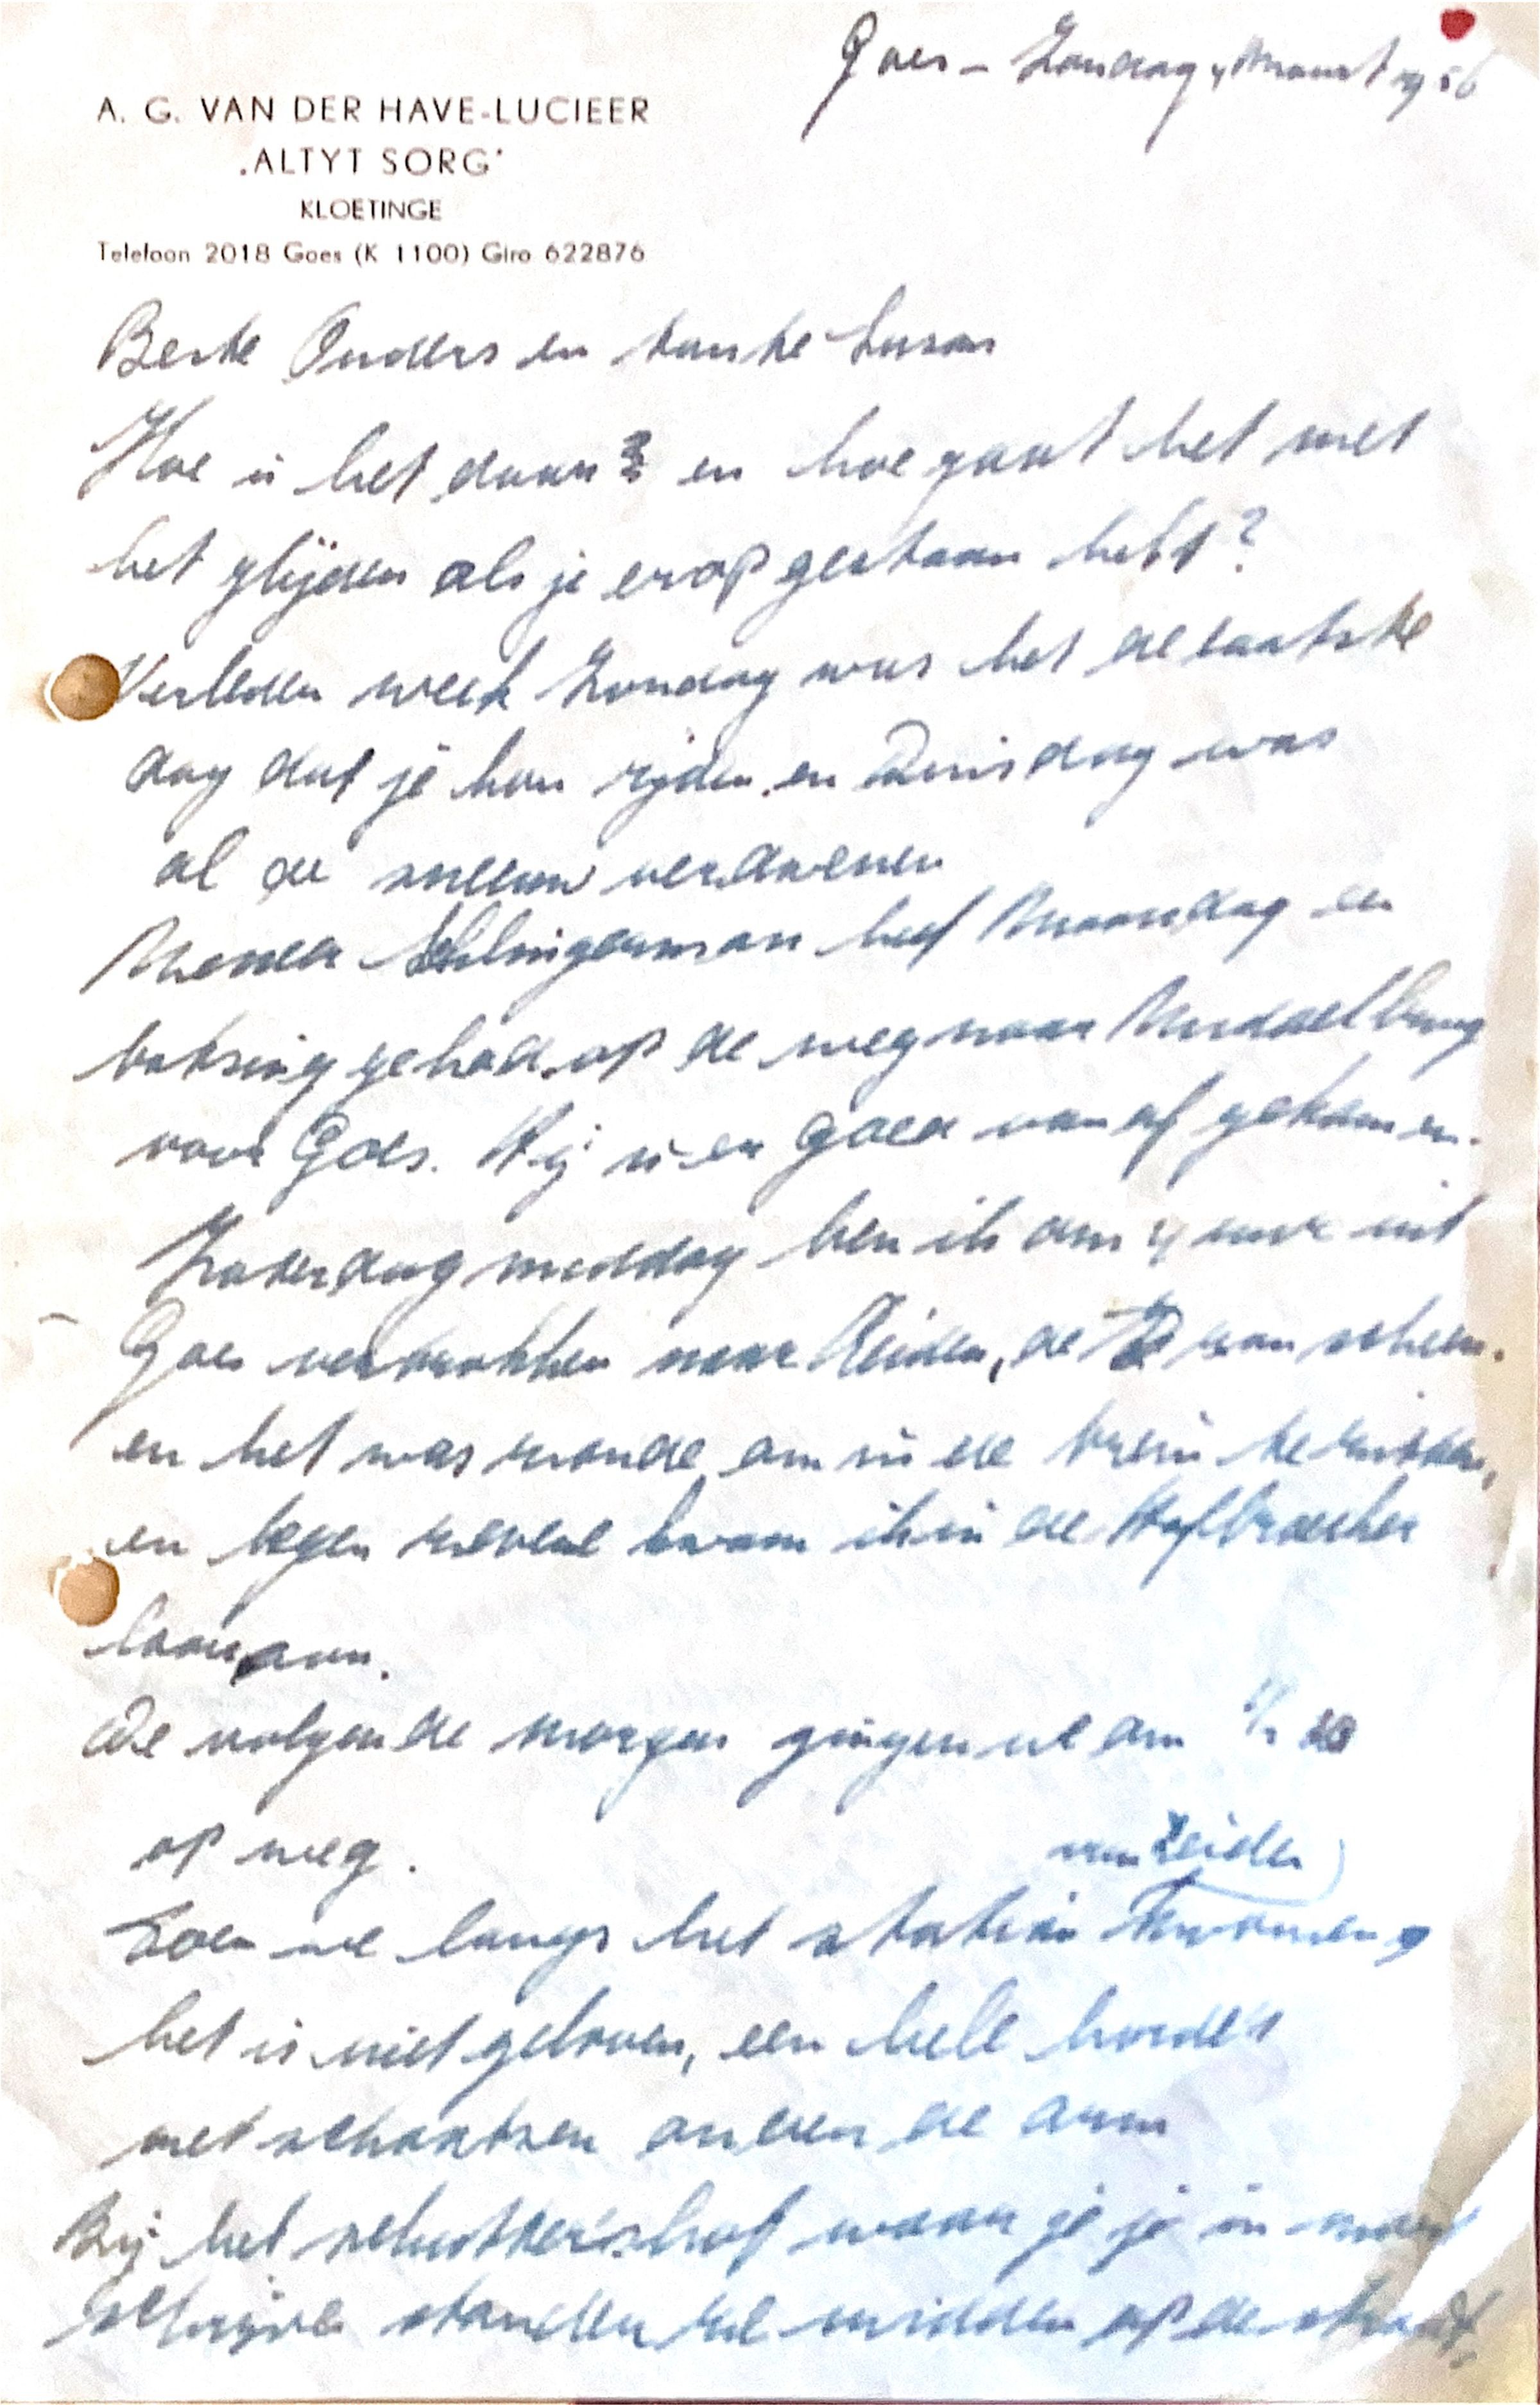 Goes - Zondag 4 Maart 1956
A. G. VAN DER HAVE-LUCIEER
„ALTYT SORG"
KLOETINGE
Telefoon 2018 Goes (K 1100) Giro 622876
Beste Ouders en tante
Hoe is het daar? en hoe gaat het met
het glijden als je erop gestaan hebt?
Verleden week Zondag was het de laatste
dag dat je kon rijden en Dinsdag was
al de sneeuw verdwenen
Meneer heef Maandag een
botsing gehad op de weg naar Middelburg
voor Goes. Hij is er goed van af gekomen.
Zaterdag middag ben ik om 4 uur uit
Goes vertrokken naar Leiden, de zon scheen.
en het was zonde om in de trein te zitten,
en tegen zevene kwam ik in de Hofbroeker
laan aan.
De volgende morgen gingen we om ½ 10
op weg.
Toen we langs het station van Leiden kwamen,
het is niet geloven, een hele horde
met schaatsen onder de arm
Bij het schuttershof waar je je in moest
schrijven stonden ze midden op de straat,